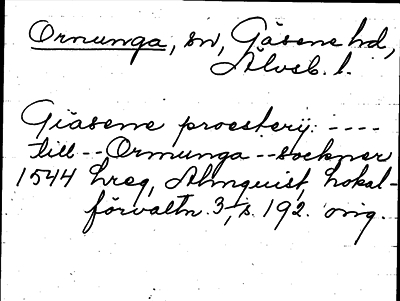 Ormunga, sn, Gäsene hd,
Älvsb. l.
Giäsene proesterij: ----
till -- Ormunga -- sockner
1544 hreg, Almquist, Lokal-
förvaltn. 3, s. 192. orig.